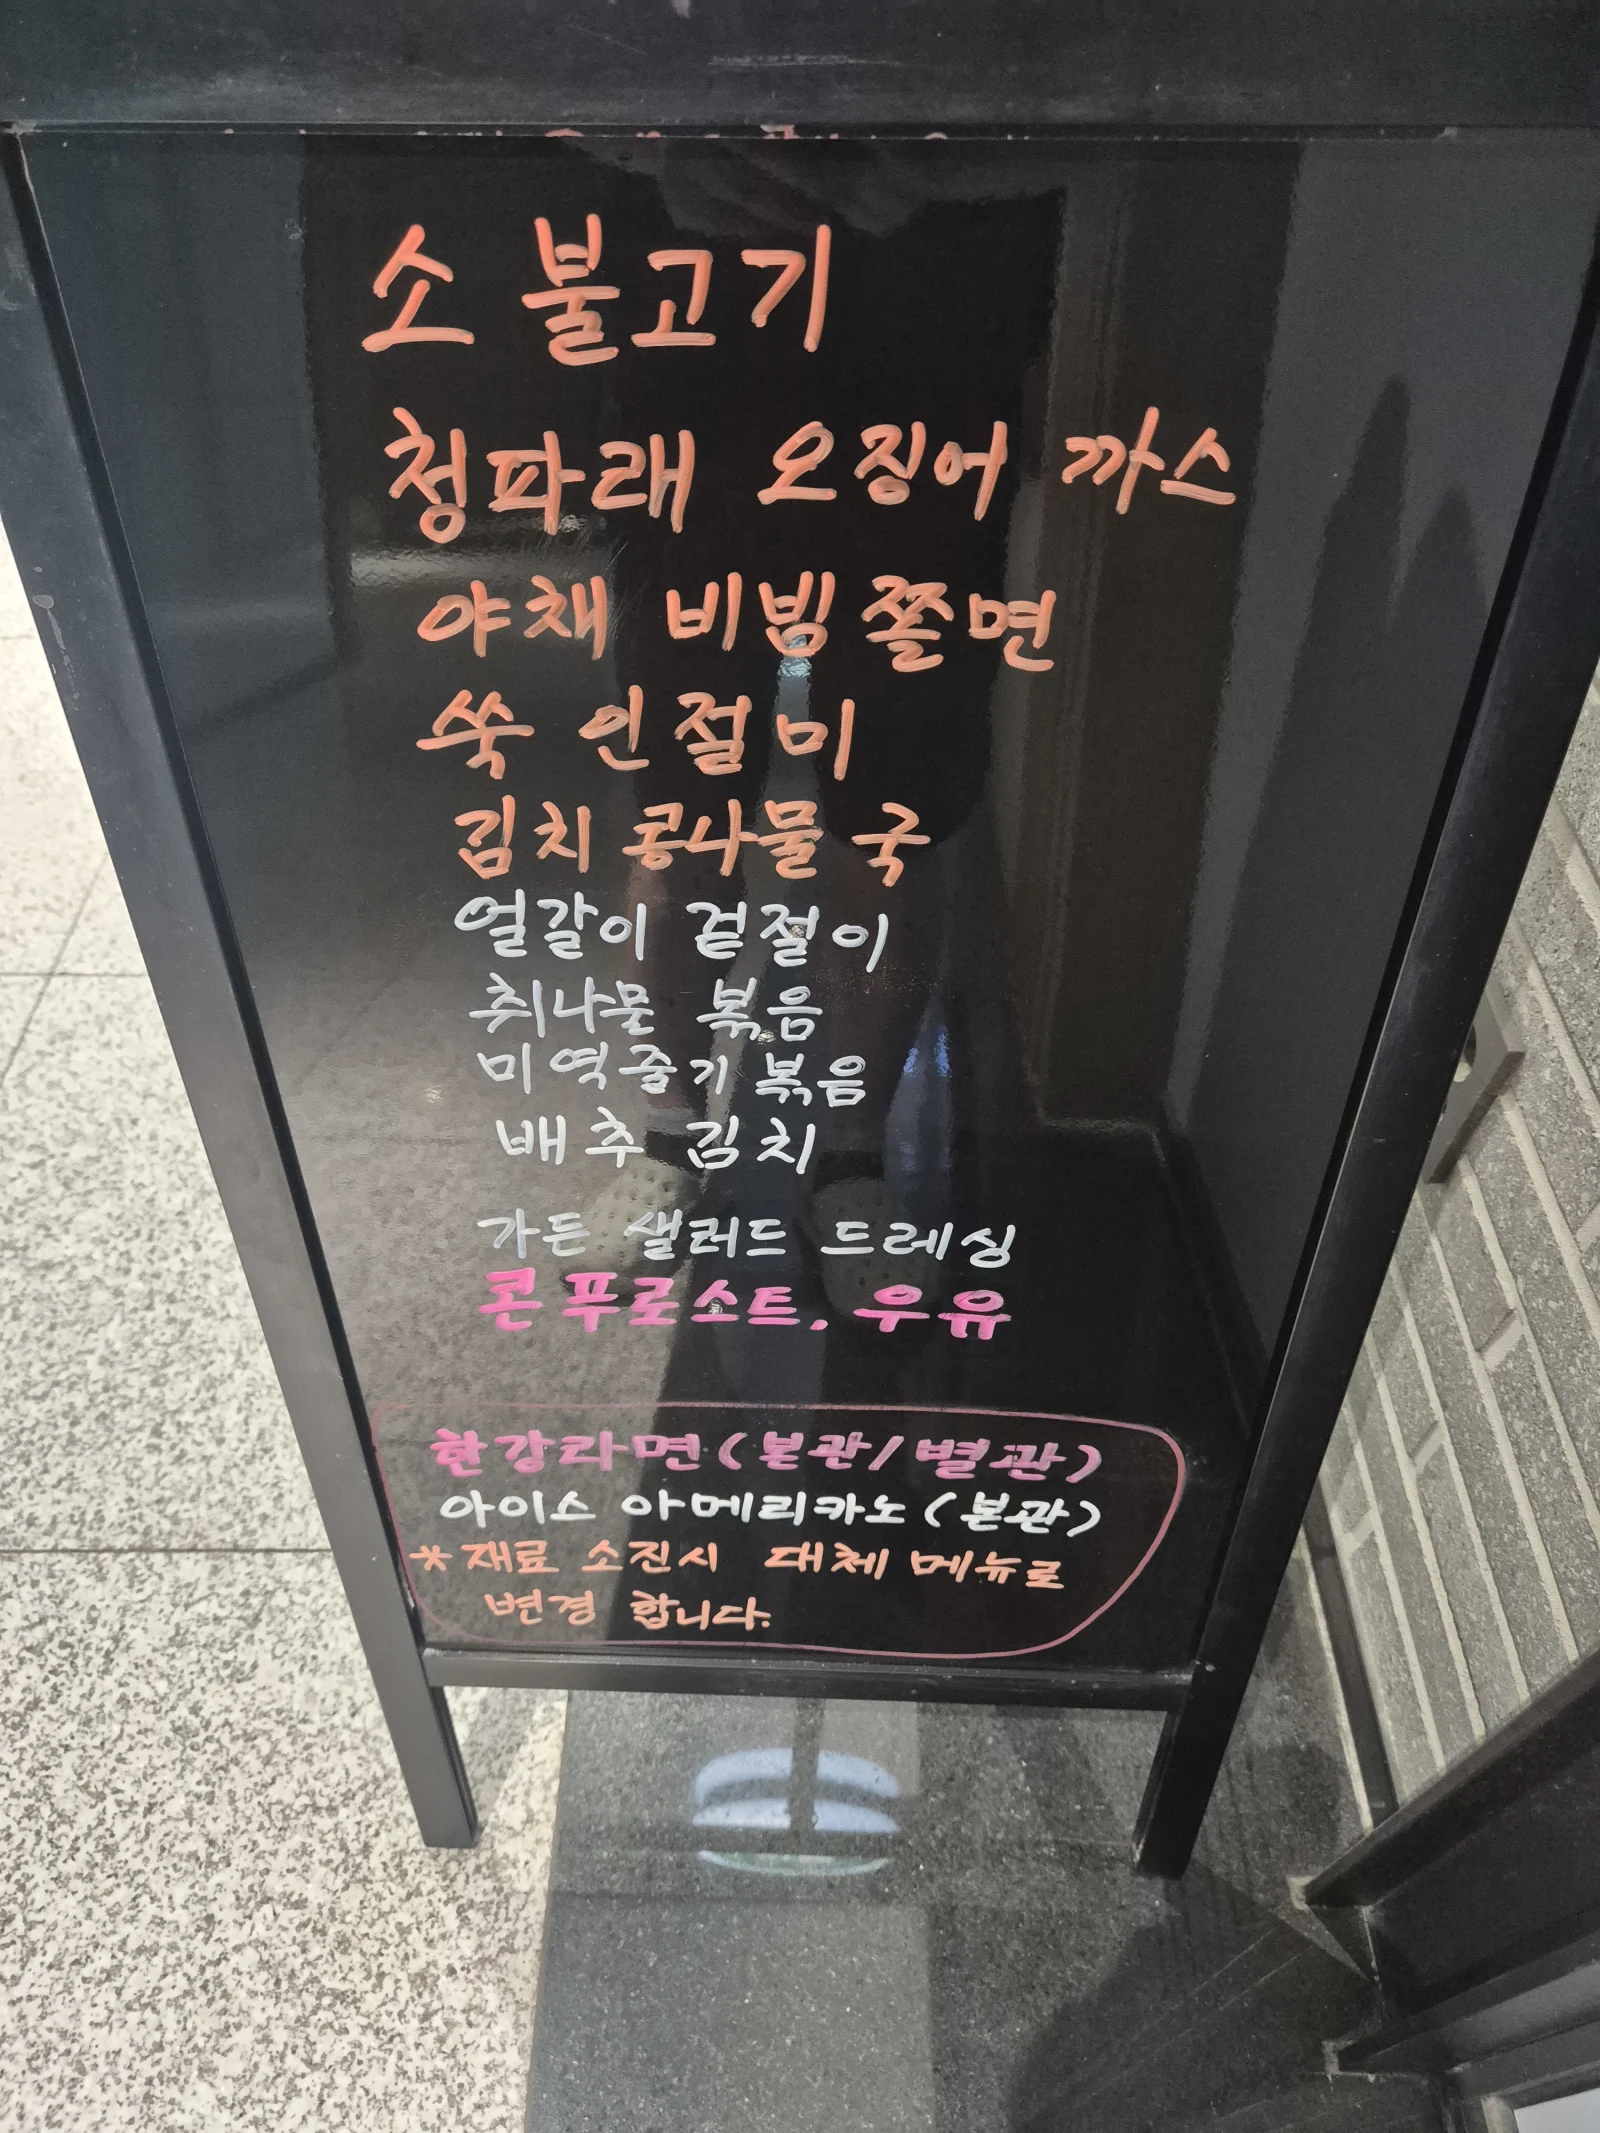 소 불고기
청파래 오징어 까스
야채 비빔쫄면
쑥 인절미
김치 콩나물 국
얼갈이 겉절이
취나물 볶음
미역줄기 볶음
배추 김치
가든 샐러드 드레싱
콘푸로스트. 우유
한강라면(본관/별관)
아이스 아메리카노(본관)
*재료 소진시 대체 메뉴로
변경 합니다.